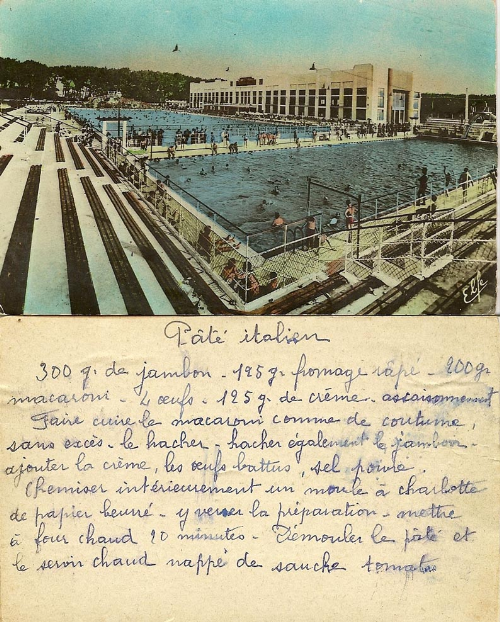 Elfe
Pâté italien
300 gr de jambon - 125 gr fromage râpé - 200 gr
macaroni - 4 œufs - 125 g. de crème - assaisonnement
Faire cuire le macaroni comme de coutume,
sans excès - le hacher - hacher également le jambon -
ajouter la crème, les œufs battus, sel poivre.
Chemiser intérieurement un moule à charlotte
de papier beurré - y verser la préparation - mettre
à four chaud 20 minutes - Démouler le pâté et
le servir chaud nappé de sauche tomate